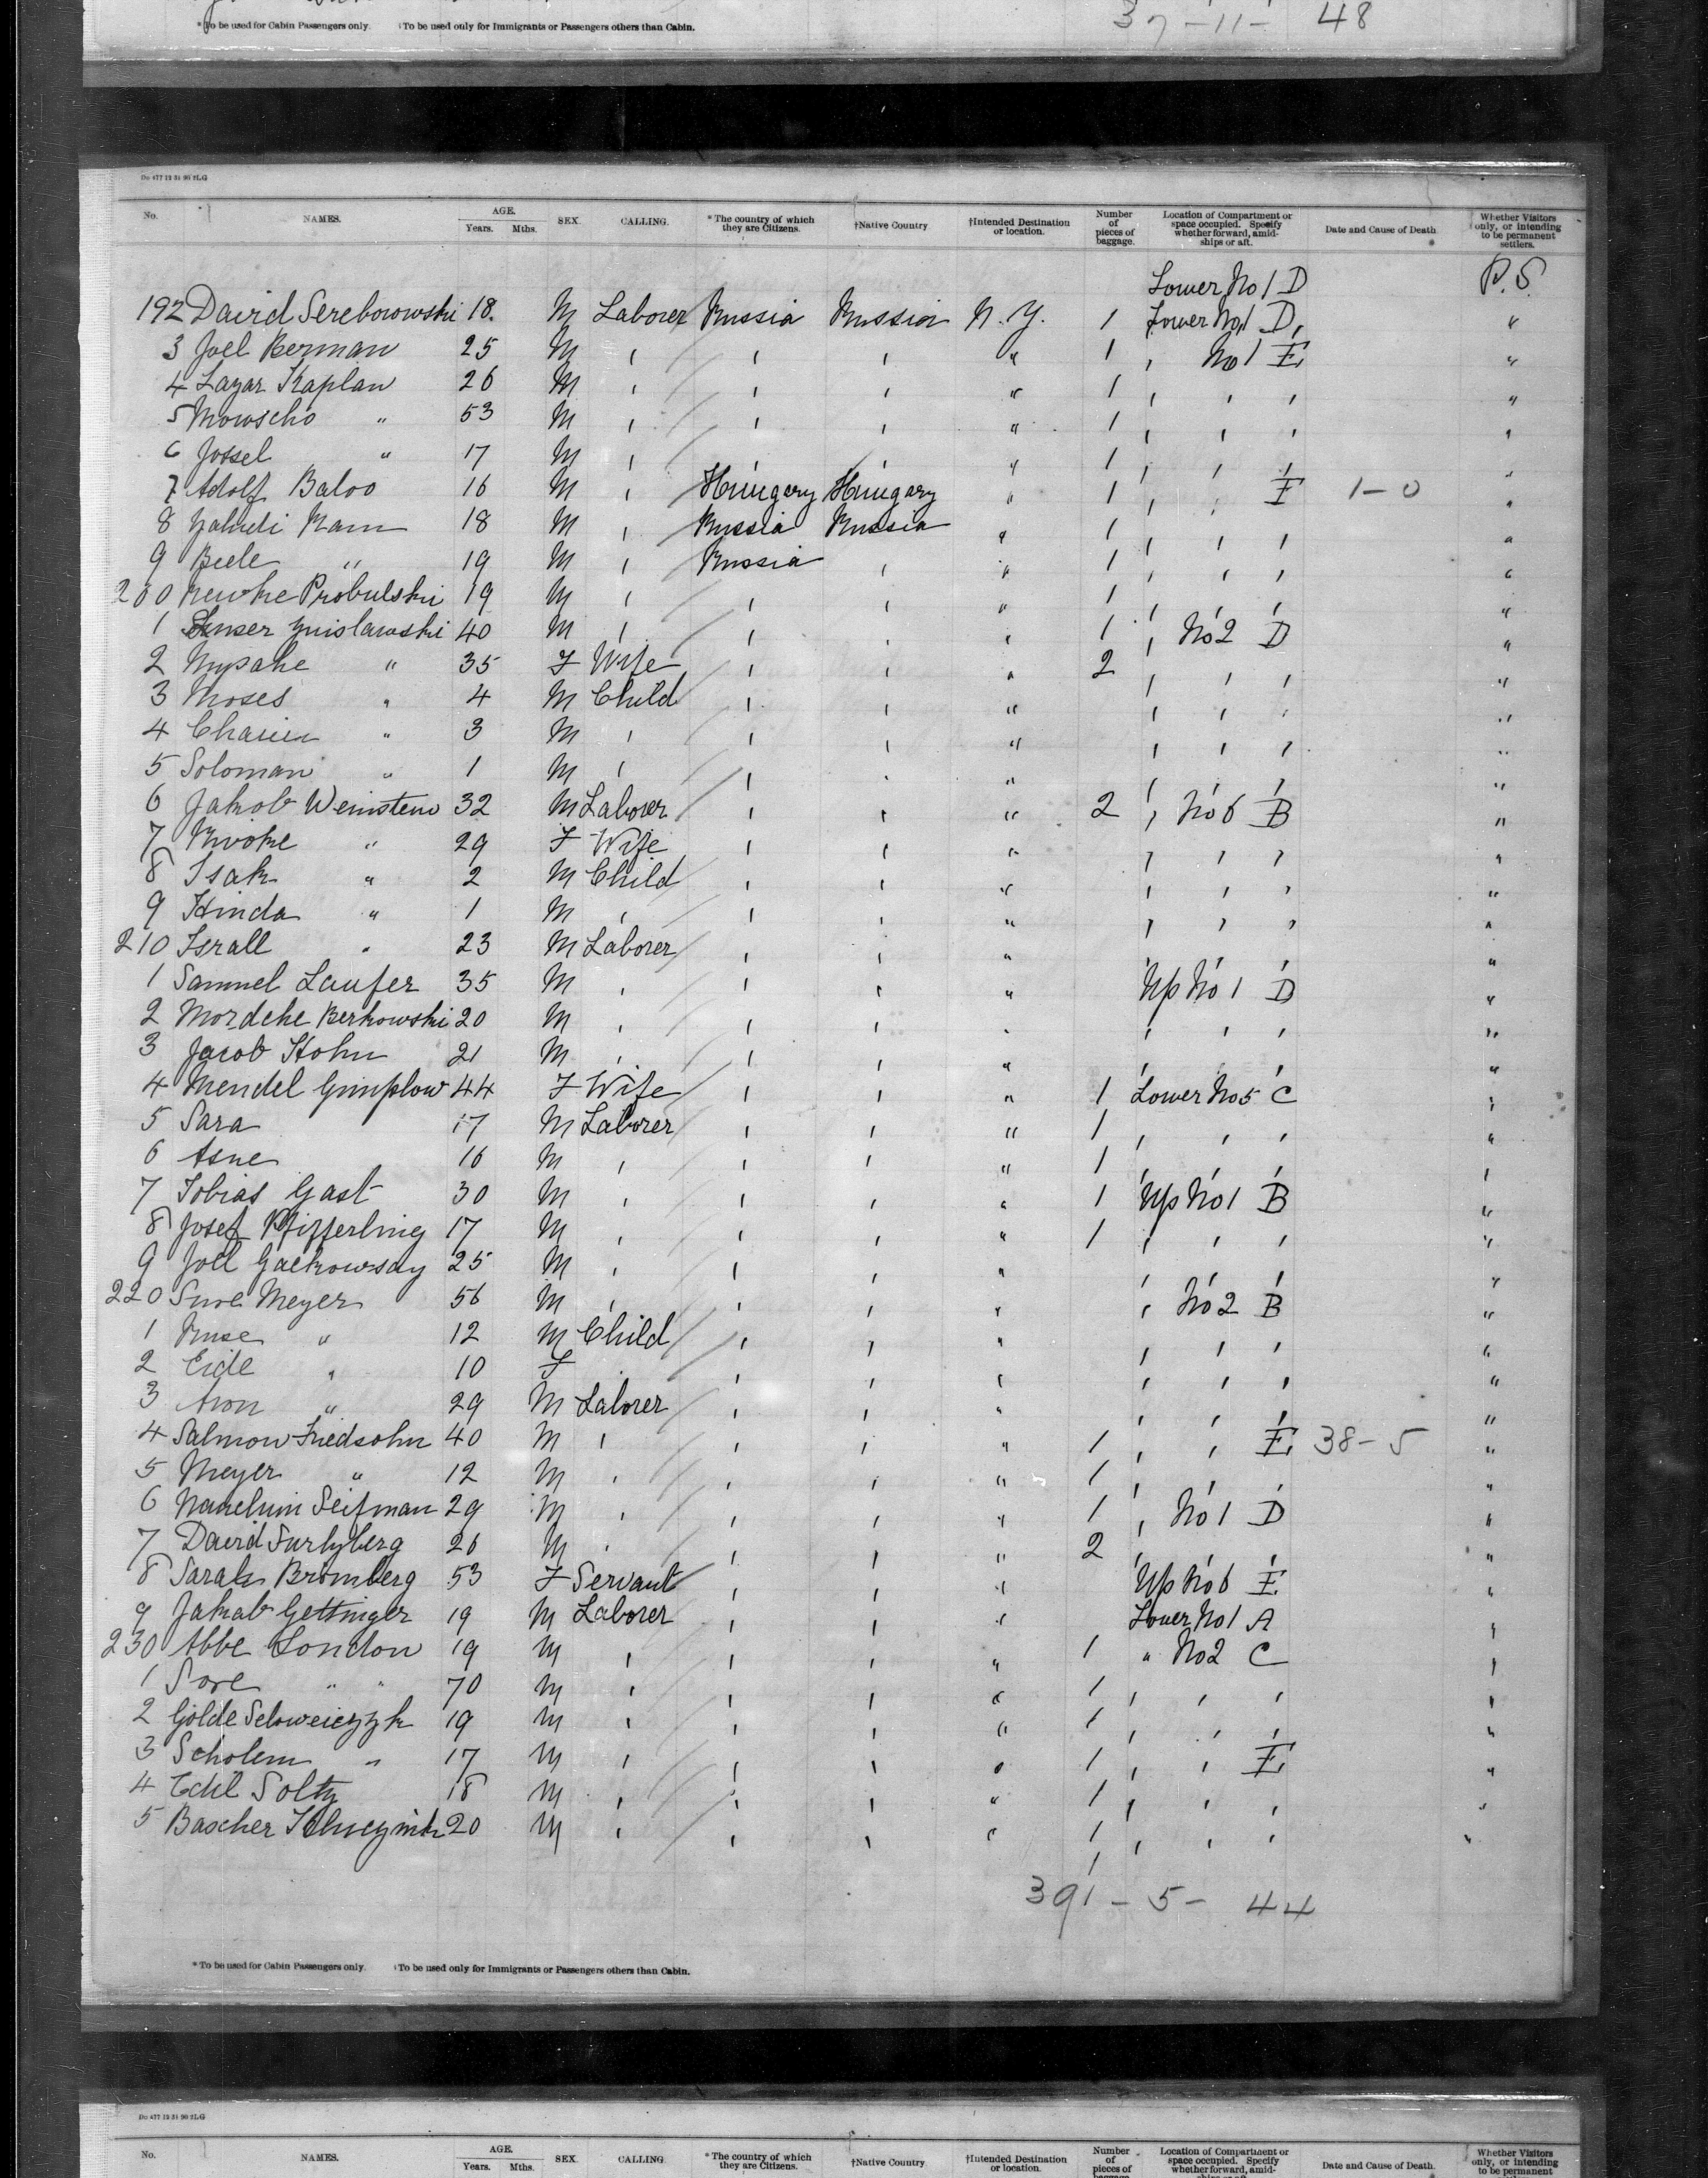 *To be used for Cabin Passengers only. †To be used only for Immigrants or Passengers others than Cabin. 37-11- 48
Do 477 12 31 90 2LG
No. NAMES. AGE. Years. Mths. SEX. CALLING. *The country of which they are Citizens. †Native Country †Intended Destination or location. Number of pieces of baggage. Location of Compartment or space occupied. Specify whether forward, amidships or aft. Date and Cause of Death Whether Visitors only, or intending to be permanent settlers.
Lower No 1 D P.S.
192 David Sereborowski 18. M Laborer Russia Russia N.Y. 1 Lower No 1 D, "
3 Joel Berman 25 M ' ' ' " 1 ' No 1 E "
4 Lazar Kaplan 26 M ' ' ' " 1 ' ' ' "
5 Mowscho " 53 M ' ' ' " 1 ' ' ' "
6 Jossel " 17 M ' ' ' " 1 ' ' ' "
7 Adolf Baloo 16 M ' Hungary Hungary " 1 ' ' E 1-0 "
8 Ram 18 M ' Russia Russia " 1 ' ' ' "
9 Beele " 19 M ' Russia ' " 1 ' ' ' "
200 Probulski 19 M ' ' ' " 1 ' ' ' "
1 40 M ' ' ' " 1 ' No 2 D "
2 " 35 F Wife ' ' " 2 ' ' ' "
3 Moses " 4 M Child ' ' " ' ' ' "
4 Chaim " 3 M ' ' ' " ' ' ' "
5 Soloman " 1 M ' ' ' " ' ' ' "
6 Jakob Weinstein 32 M Laborer ' ' " 2 ' No 6 B "
7 Rwoke " 29 F Wife ' ' " ' ' ' "
8 Isak " 2 M Child ' ' " ' ' ' "
9 Hinda " 1 M ' ' ' " ' ' ' "
210 Israll " 23 M Laborer ' ' " ' ' ' "
1 Samuel Laufer 35 M ' ' ' " Up No 1 D "
2 Mordche Berkowski 20 M ' ' ' " ' ' ' "
3 Jacob Kohn 21 M ' ' ' " ' ' "
4 Mendel Gimplow 44 F Wife ' ' " 1 Lower No 5 C "
5 Sara 17 M Laborer ' ' " 1 ' ' ' "
6 Asne 16 M ' ' ' " 1 "
7 Tobias Gast 30 M ' ' ' " 1 Up No 1 B "
8 Josef Pfifferling 17 M ' ' ' " 1 ' ' ' "
9 Joel 25 M ' ' ' " ' ' ' "
220 Sure Meyer 56 M ' ' ' " ' No 2 B "
1 Ruse " 12 M Child ' ' " ' ' ' "
2 Eide " 10 F ' ' " ' ' ' "
3 Aron " 29 M Laborer ' ' " ' ' ' "
4 Salmon Friedsohn 40 M ' ' ' " 1 ' ' E 38-5 "
5 Meyer " 12 M ' ' ' " 1 ' ' ' "
6 Seifman 29 M ' ' ' " 1 ' No 1 D "
7 David 26 M ' ' ' " 2 ' "
8 Sarah Bromberg 53 F Servant ' ' " Up No 6 E "
9 Jakab Gettinger 19 M Laborer ' ' " Lower No 1 A "
230 Abbe London 19 M ' ' ' " 1 " No 2 C "
1 Sore " " 70 M ' ' ' " 1 ' ' ' "
2 Golde 19 M ' ' ' " 1 ' ' ' "
3 Scholem " 17 M ' ' ' " 1 ' ' E "
4 Edel Solty 18 M ' ' ' " 1 ' ' ' "
5 Bascher 20 M ' ' ' " 1 ' ' ' "
391-5- 44
*To be used for Cabin Passengers only. †To be used only for Immigrants or Passengers others than Cabin.
Do 477 12 31 90 2LG
No. NAMES. AGE. Years. Mths. SEX. CALLING. *The country of which they are Citizens. †Native Country †Intended Destination or location. Number of pieces of Location of Compartment or space occupied. Specify whether forward, amid- Date and Cause of Death. Whether Visitors only, or intending to be permanent